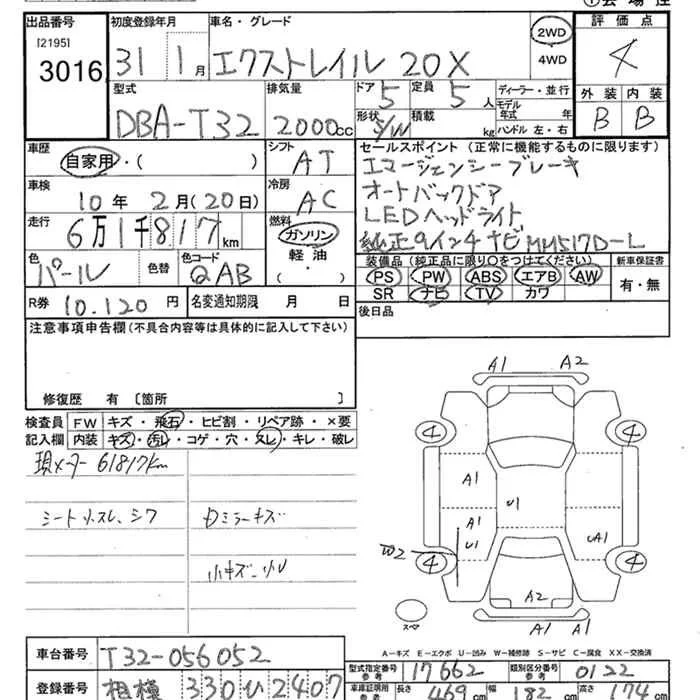 出品番号
[2195]
3016
初度登録年月
31 1月
車名・グレード
エクストレイル 20X
2WD
4WD
評価点
4
外装 内装
B B
型式
DBA-T32
排気量
2000cc
ドア 5
形状 S/W
定員 5人
積載 kg
ディーラー・並行
モデル年式 年
ハンドル 左・右
車歴
自家用・( )
シフト
AT
車検
10年 2月(20日)
冷房
AC
走行
6万1千817km
燃料
ガソリン
軽油
( )
色
パール
色替
色コード
QAB
R券 10.120 円
名変通知期限 月 日
セールスポイント (正常に機能するものに限ります)
エマージェンシーブレーキ
オートバックドア
LEDヘッドライト
純正9インチナビ MM517D-L
装備品 (純正品に限り○をつけてください)
PS PW ABS エアB AW
SR ナビ TV カワ
新車保証書
有・無
後日品
注意事項申告欄 (不具合内容等は具体的に記入して下さい)
修復歴 有 〔箇所 〕
検査員記入欄
FW キズ・飛石・ヒビ割・リペア跡・×要
内装 キズ・汚レ・コゲ・穴・スレ・キレ・破レ
現メーター 61817km
シート スレ、シワ
ミラーキズ
小キズ
A1 A2
4 4
A1
U1
A1
U1
W2
UA1
4 4
A2
A1 A1
スペア
A−キズ E−エクボ U−凹み W−補修跡 S−サビ C−腐食 XX−交換済
車台番号 T32-056052
登録番号 相模 330 ひ 2407
型式指定番号 参考 17662
類別区分番号 参考 0122
車庫証明用 参考 長さ 469cm 幅 182cm 高さ 174cm